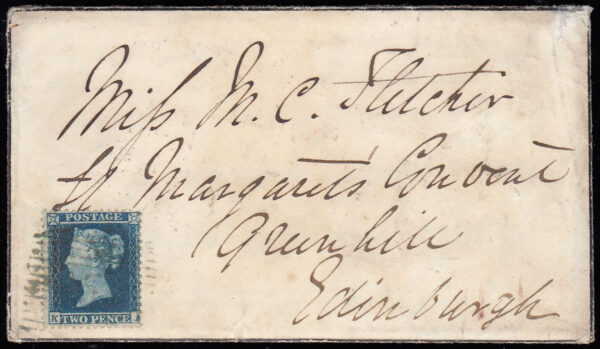 Miss M. C. Fletcher
St Margarets Convent
Greenhill
Edinburgh
POSTAGE
TWO PENCE
K